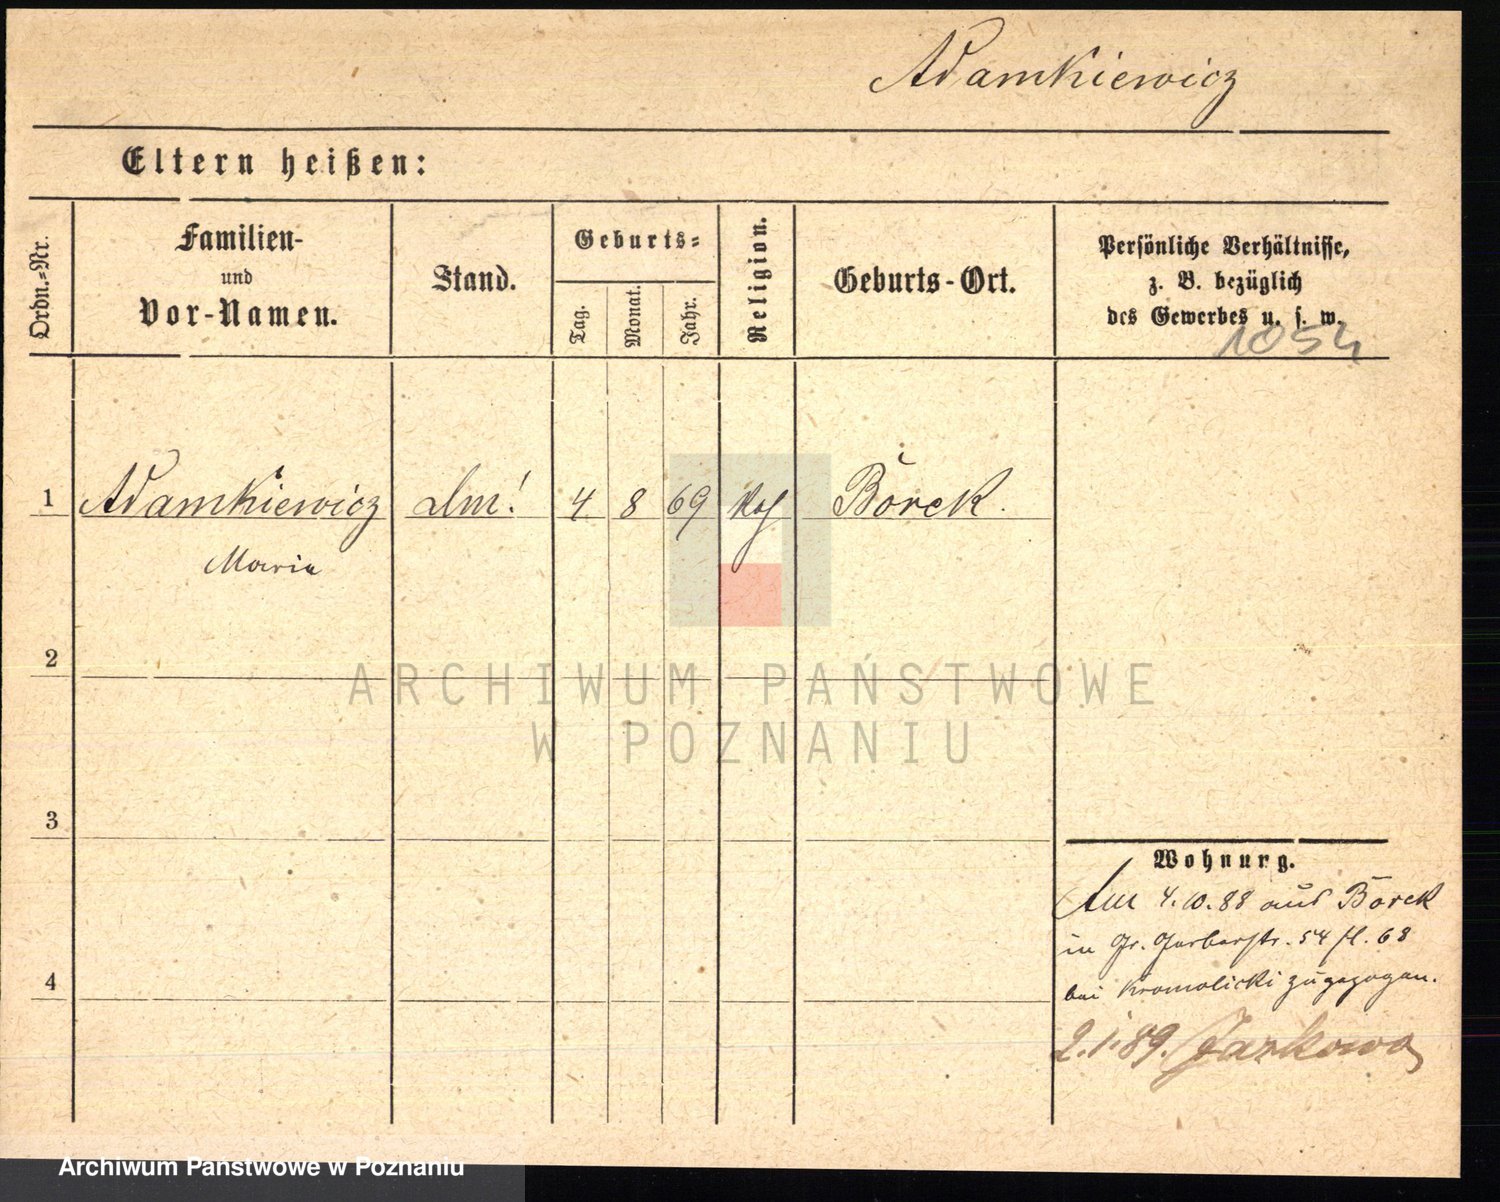 Adamkiewicz
Eltern heißen:
Ordn.-Nr.
Familien-
und
Vor-Namen.
Stand.
Geburts-
Tag.
Monat.
Jahr.
Religion.
Geburts-Ort.
Persönliche Verhältnisse,
z. B. bezüglich
des Gewerbes u. s. w.
1054
1 Adamkiewicz 4 8 69 kath Borek.
Maria
2
ARCHIWUM PAŃSTWOWE
W POZNANIU
3
Wohnung.
Am 4.10.88 aus Borek
in Gr. Gerberstr. 54 fl. 68
bei Kromolicki zugezogen.
2.1.89.
4
Archiwum Państwowe w Poznaniu